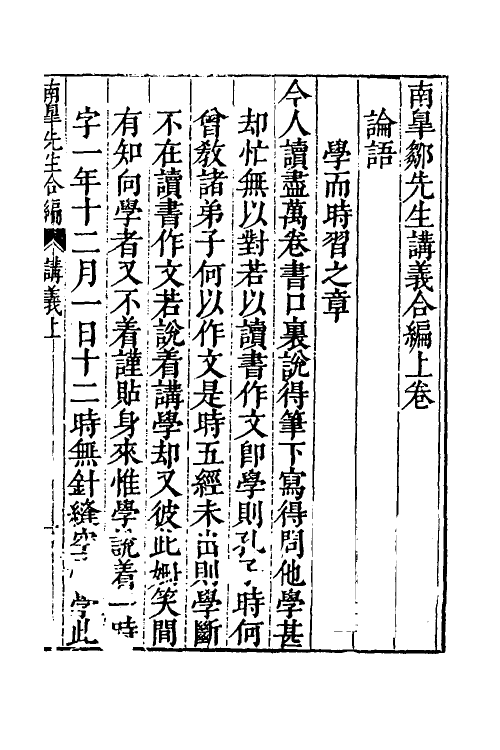 南臯鄒先生講義合編上卷
論語
學而時習之章
今人讀盡萬卷書口裏說得筆下寫得問他學甚
却忙無以對若以讀書作文卽學則孔子時何
曾敎諸弟子何以作文是時五經未出則學斷
不在讀書作文若說着講學却又彼此嘲笑間
有知向學者又不着謹貼身來惟學說着一時
字一年十二月一日十二時無針縫空 學此
南臯先生合編 講義上 一